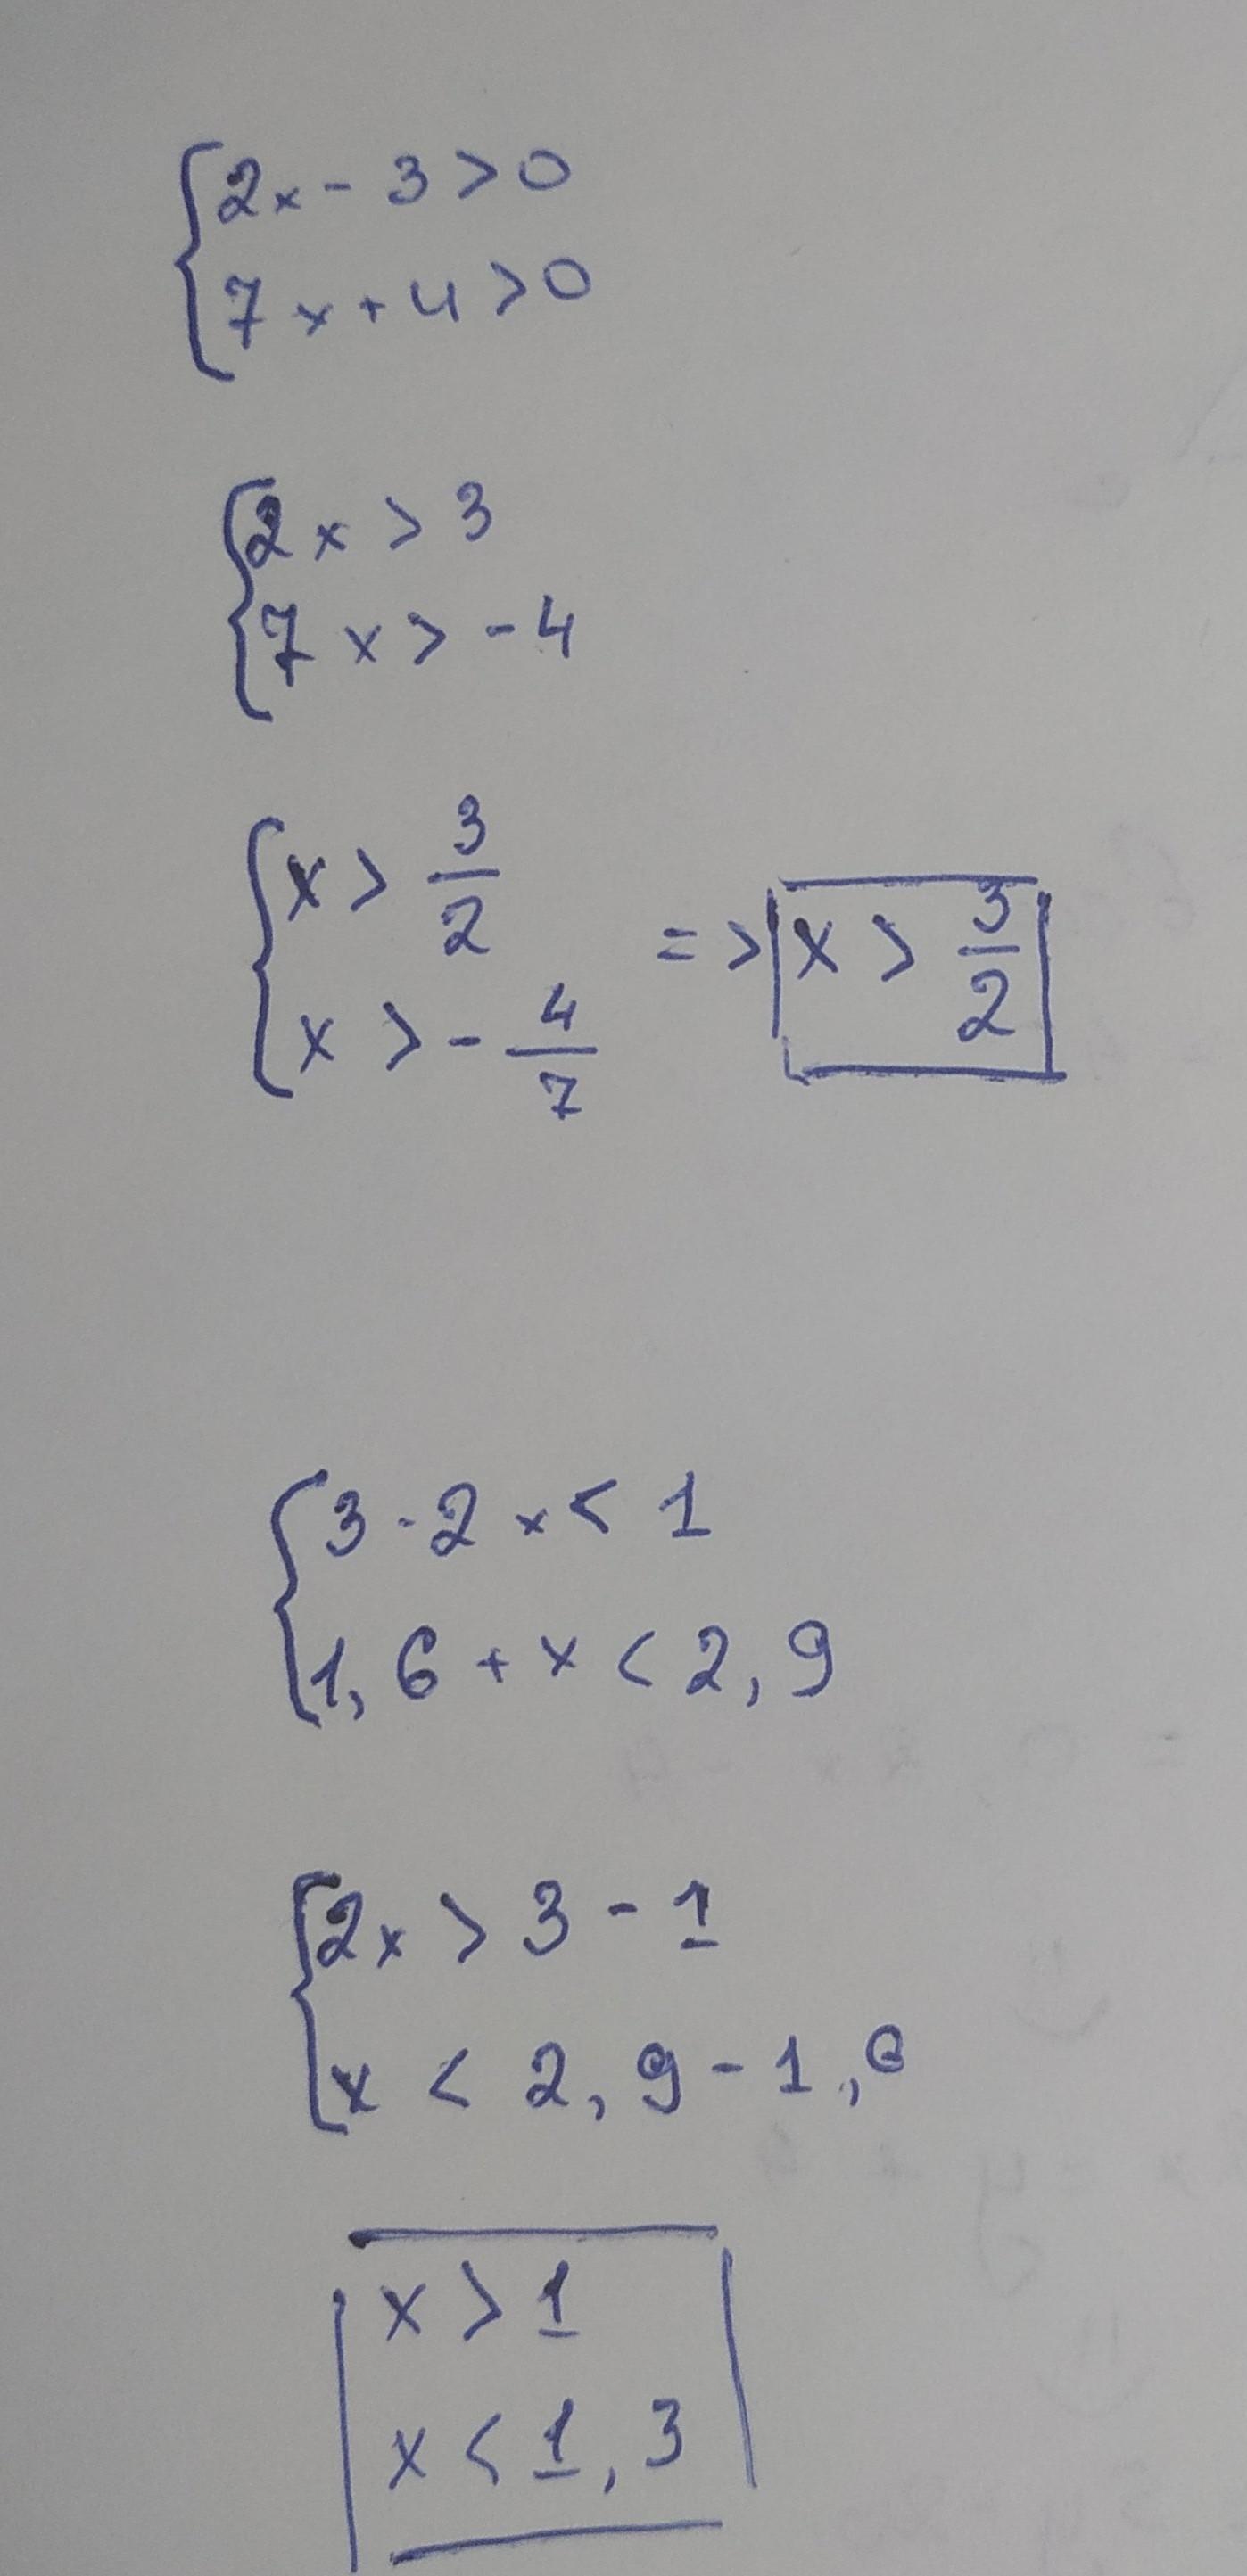 {2x - 3 > 0
{7x + 4 > 0
{2x > 3
{7x > -4
{x > 3/2
{x > - 4/7 => x > 3/2
{3 - 2x < 1
{1,6 + x < 2,9
{2x > 3 - 1
{x < 2,9 - 1,6
x > 1
x < 1,3